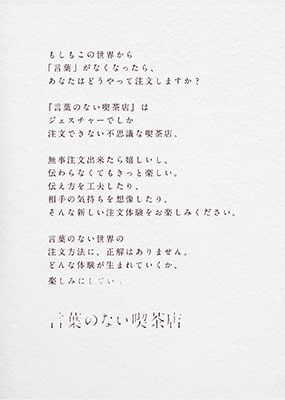 もしもこの世界から
「言葉」がなくなったら、
あなたはどうやって注文しますか?
『言葉のない喫茶店』は
ジェスチャーでしか
注文できない不思議な喫茶店。
無事注文出来たら嬉しいし、
伝わらなくてもきっと楽しい。
伝え方を工夫したり、
相手の気持ちを想像したり。
そんな新しい注文体験をお楽しみください。
言葉のない世界の
注文方法に、正解はありません。
どんな体験が生まれていくか、
楽しみにしてい
言葉のない喫茶店